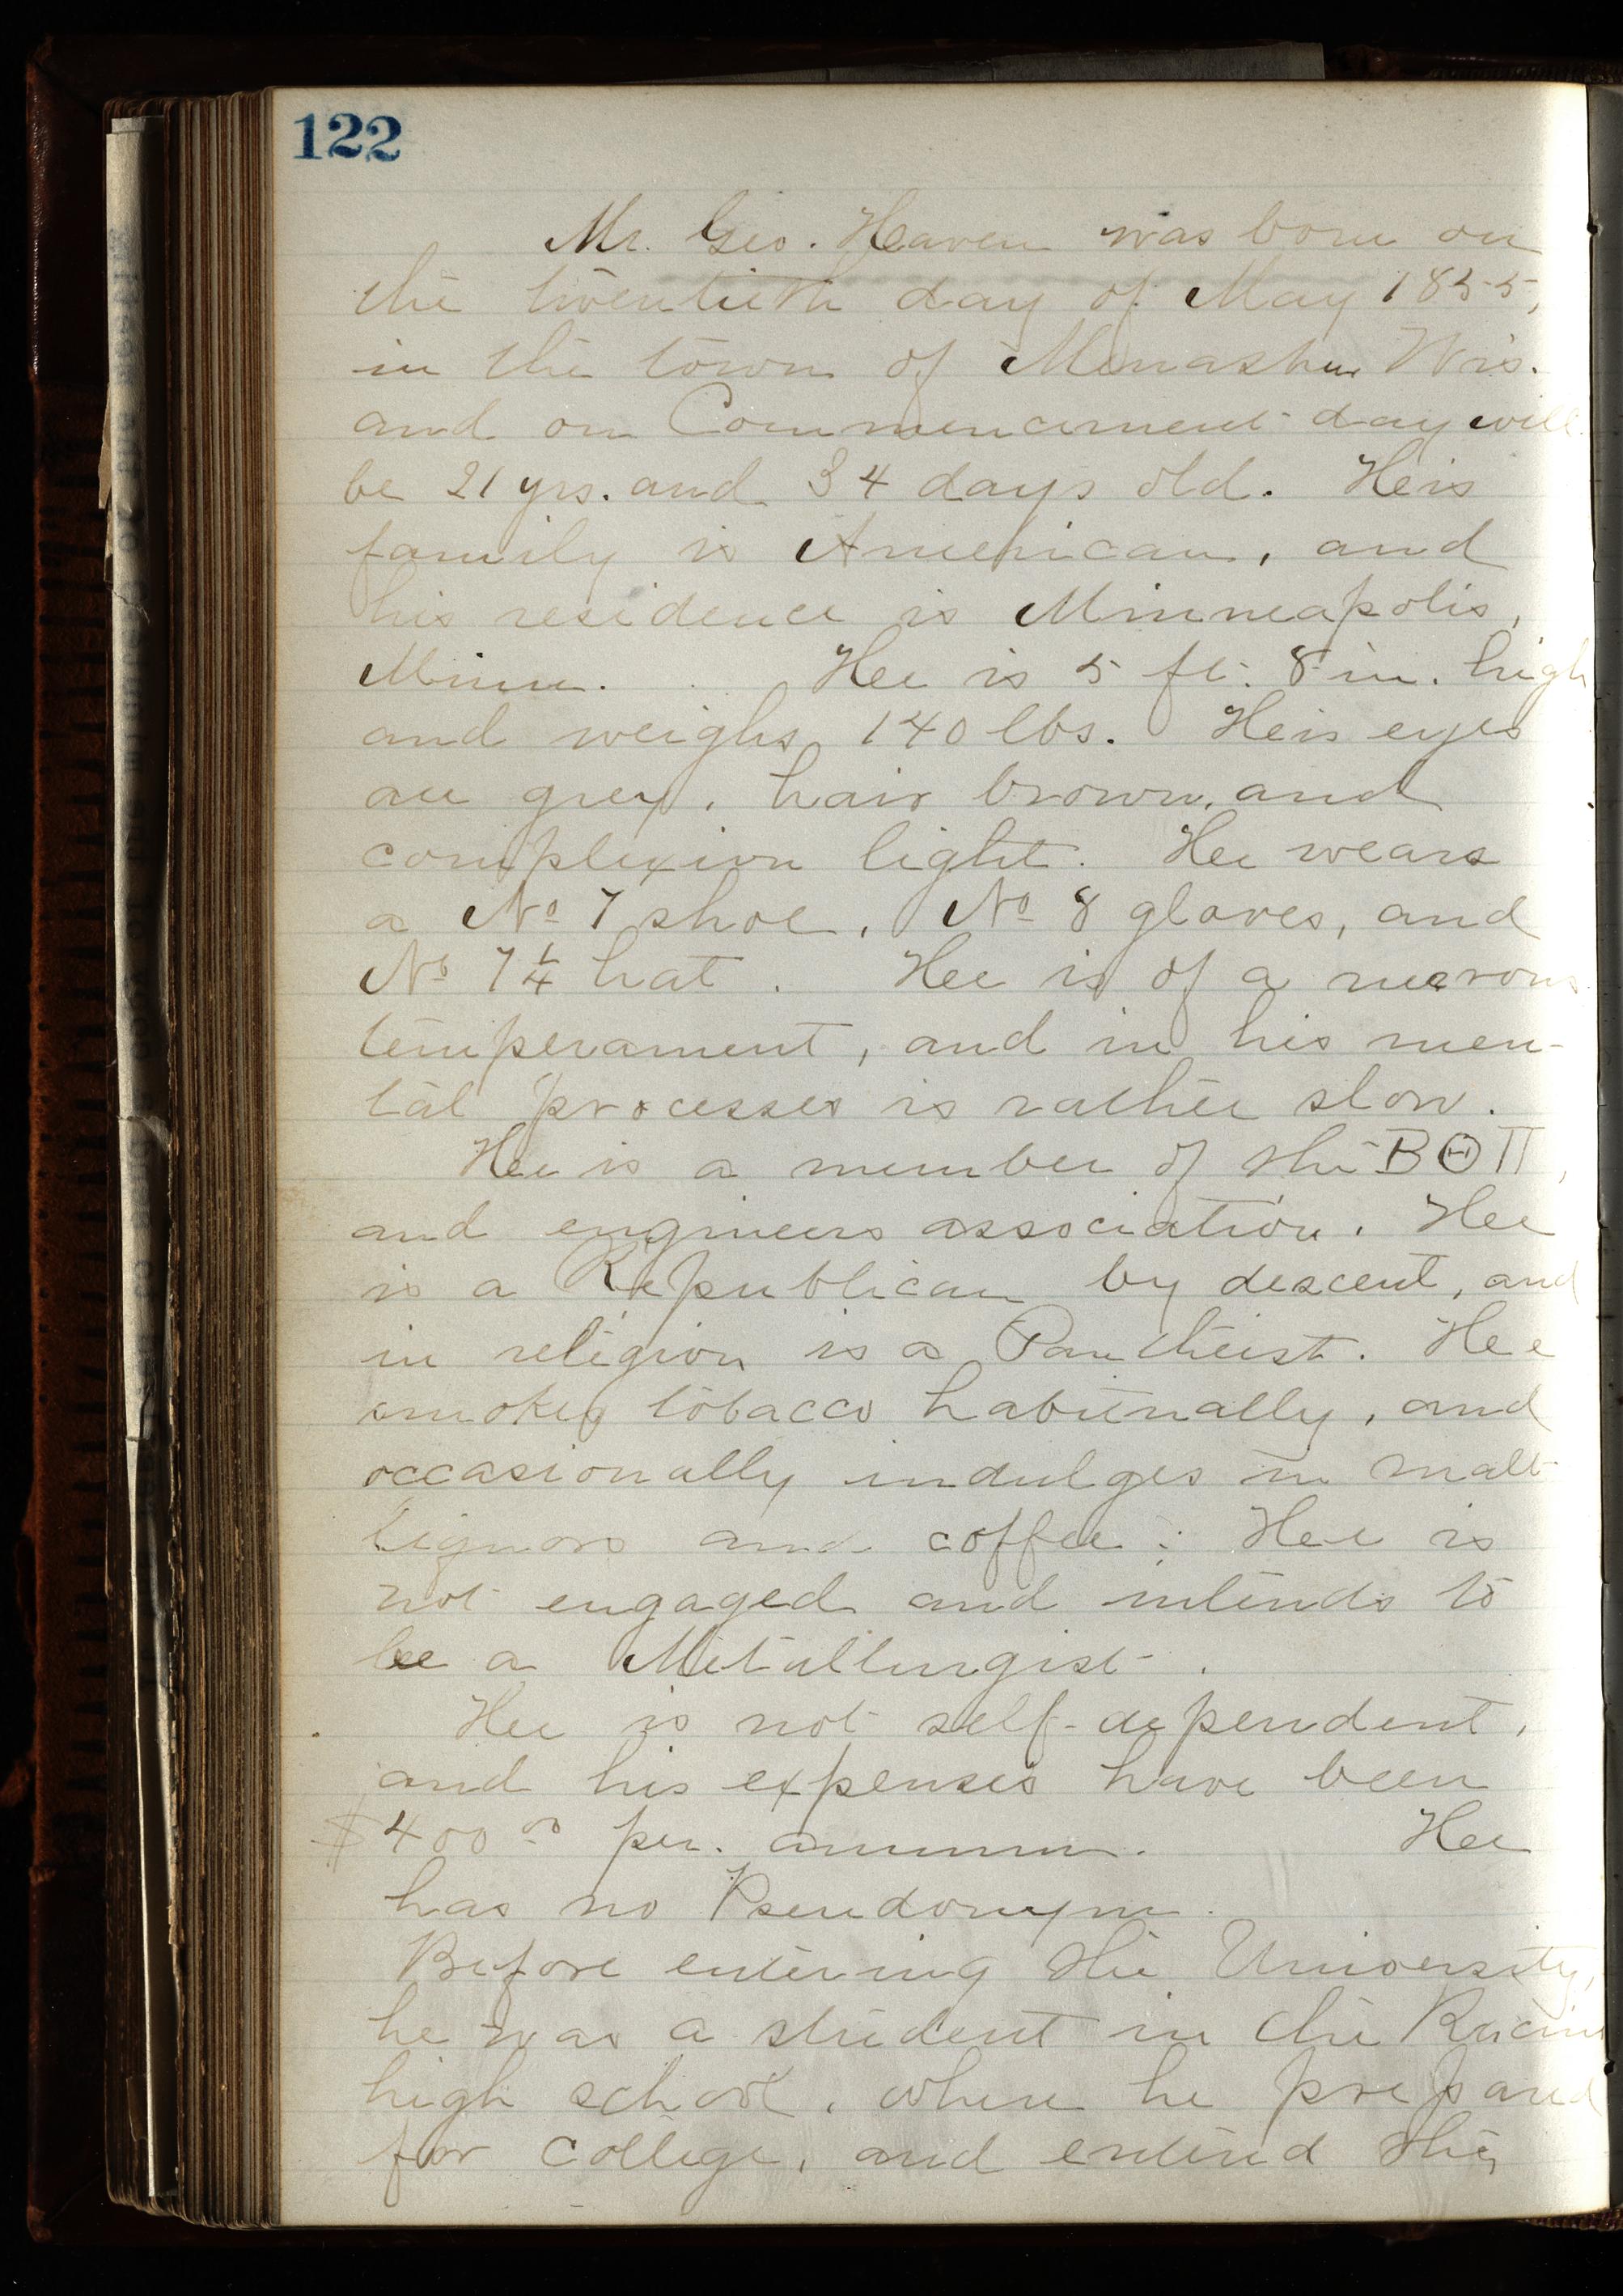 122
Mr. Geo. Haven was born on
the twentieth day of May 1855,
in the town of Menasha Wis.
and on Commencement day will
be 21 yrs. and 34 days old. His
family is American, and
his residence is Minneapolis,
Minn. He is 5 ft. 8 in. high
and weighs 140 lbs. His eyes
are grey, hair brown, and
complexion light. He wears
a No 7 shoe, No 8 gloves, and
No 7 1/4 hat. He is of a nervous
temperament, and in his men-
tal processes is rather slow.
He is a member of the ΒΘΠ,
and engineers association. He
is a Republican by descent, and
in religion is a Pantheist. He
smokes tobacco habitually, and
occasionally indulges in malt
liquors and coffee. He is
not engaged and intends to
be a Metallurgist.
He is not self-dependent,
and his expenses have been
$400 00 per. annum. He
has no Pseudonym.
Before entering the University,
he was a student in the Racine
high school, where he prepared
for college, and entered the